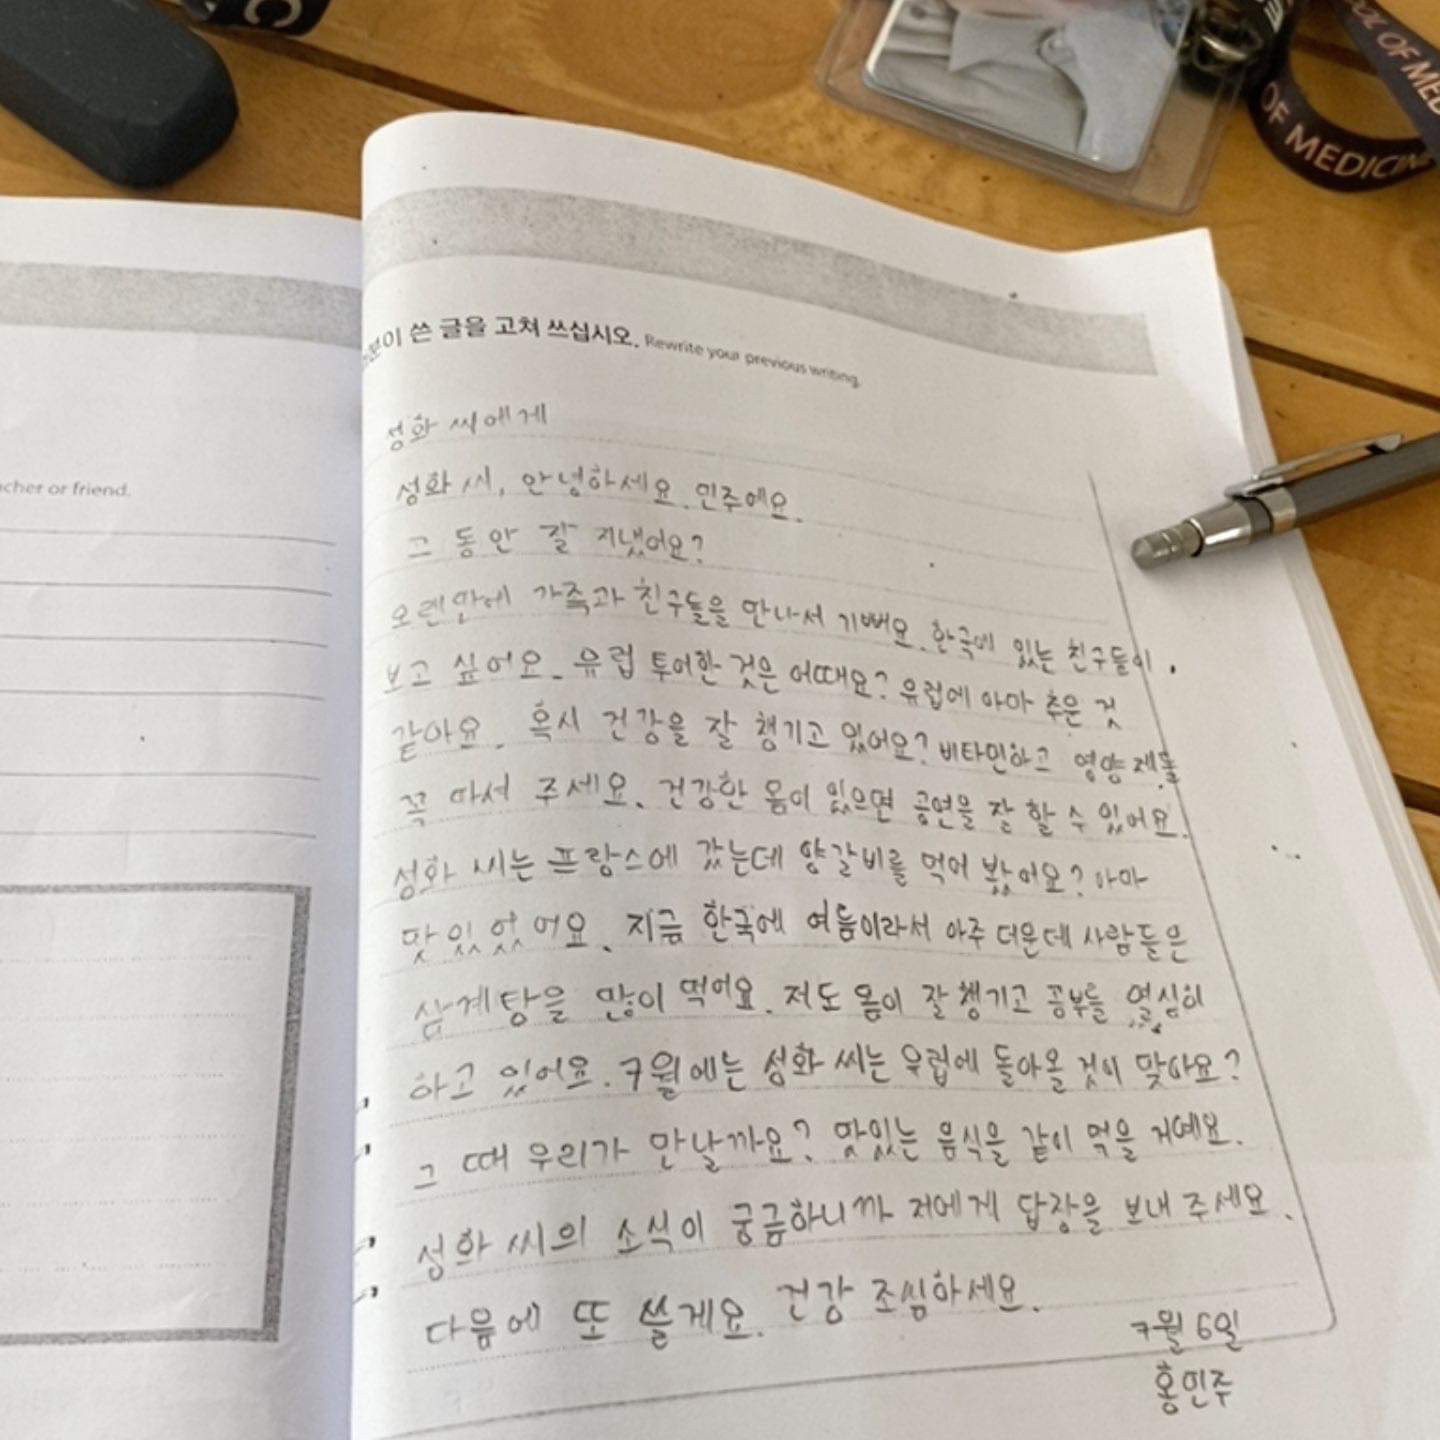 C
OF MEDICIN
OOL OF MED
분이 쓴 글을 고쳐 쓰십시오. Rewrite your previous writing.
cher or friend.
성화 씨에게
성화 씨, 안녕하세요. 민주예요.
그 동안 잘 지냈어요?
오랜만에 가족과 친구들을 만나서 기뻐요. 한국에 있는 친구들이
보고 싶어요. 유럽 투어한 것은 어때요? 유럽에 아마 추운 것
같아요. 혹시 건강을 잘 챙기고 있어요? 비타민하고 영양제들
꼭 마셔 주세요. 건강한 몸이 있으면 공연을 잘 할 수 있어요.
성화 씨는 프랑스에 갔는데 양갈비를 먹어 봤어요? 아마
맛있었어요. 지금 한국에 여름이라서 아주 더운데 사람들은
삼계탕을 많이 먹어요. 저도 몸이 잘 챙기고 공부를 열심히
하고 있어요. 7월에는 성화 씨는 우럽에 돌아올 것이 맞아요?
그 때 우리가 만날까요? 맛있는 음식을 같이 먹을 거예요.
성화 씨의 소식이 궁금하니까 저에게 답장을 보내 주세요.
다음에 또 쓸게요. 건강 조심하세요.
7월 6일
홍민주